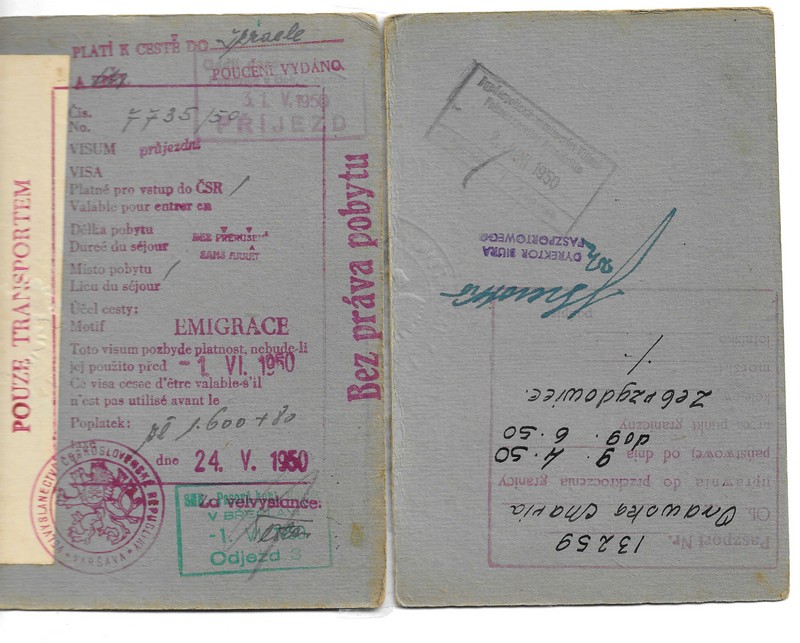 PLATÍ K CESTĚ DO Israele
POUČENÍ VYDÁNO.
A
31. V. 1950
PŘÍJEZD
Čís.
No. 7735/50
VISUM průjezdní
VISA
Platné pro vstup do ČSR /
Valable pour entrer en
Délka pobytu BEZ PŘERUŠENÍ
Dureé du séjour SANS ARRÊT
Místo pobytu /
Lieu du séjour
Účel cesty:
Motif EMIGRACE
Toto visum pozbyde platnost, nebude-li
jej použito před -1 VI. 1950
Ce visa cesse d'être valable-s'il
n'est pas utilisé avant le
Poplatek: zł 1.600+80
dne 24. V. 1950
Za velvyslance:
Odjezd 3
VELVYSLANECTVÍ ČESKOSLOVENSKÉ REPUBLIKY
VARŠAVA
POUZE TRANSPORTEM
Bez práva pobytu
1950
DYREKTOR BIURA
PASZPORTOWEGO
Paszport Nr. 13259
Ob. Onawska Maria
uprawnia do przekroczenia granicy
państwowej od dnia 9. 4. 50
do 9. 6. 50
przez punkt graniczny
Zebrzydowice
kolejowy
morski
lotniczy